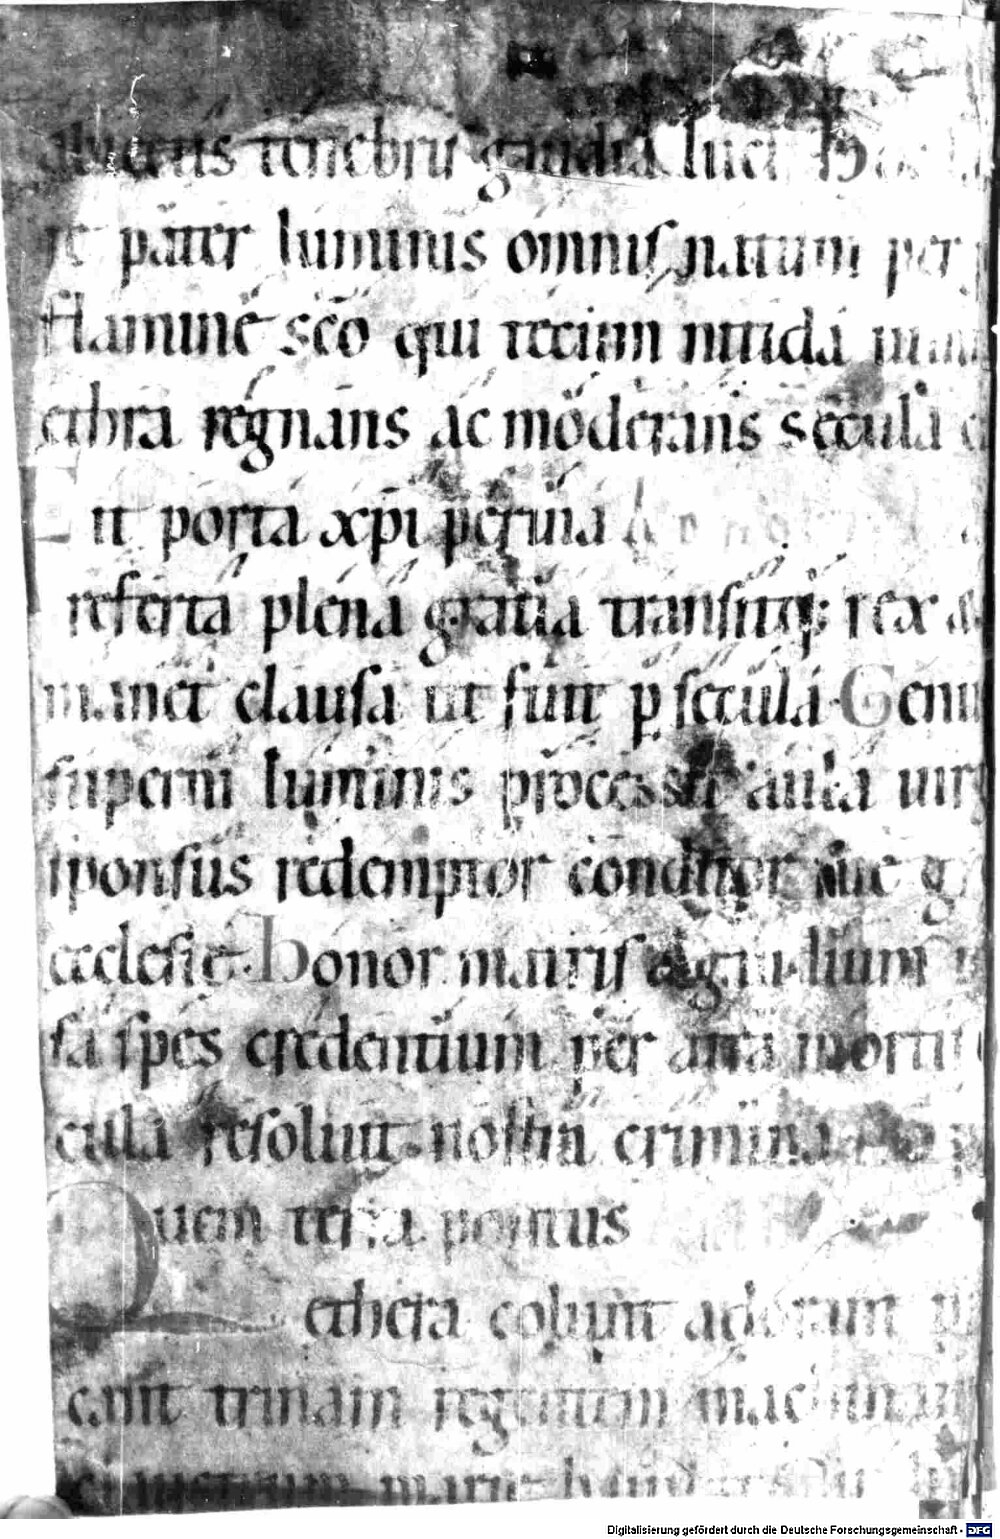 tenebris gaudia luci Hoc
pater luminis omnis natum per
flamine sc̄o qui tecum nitida
ethra regnans ac moderans secula
it porta xp̄i peruia
referta plena gratia transitq; rex
manet clausa ut fuit ꝑ secula. Genus
superni luminis processit aula uir
sponsus redemptor conditor
ecclesie. Honor matris & gaudium
sa spes credentium per atra mortis
cula resoluit nostra crimina
Quem terra pontus
ethera colunt adorant p
cant trinam regentem machinam
claustrum marie baiulat
Digitalisierung gefördert durch die Deutsche Forschungsgemeinschaft - DFG